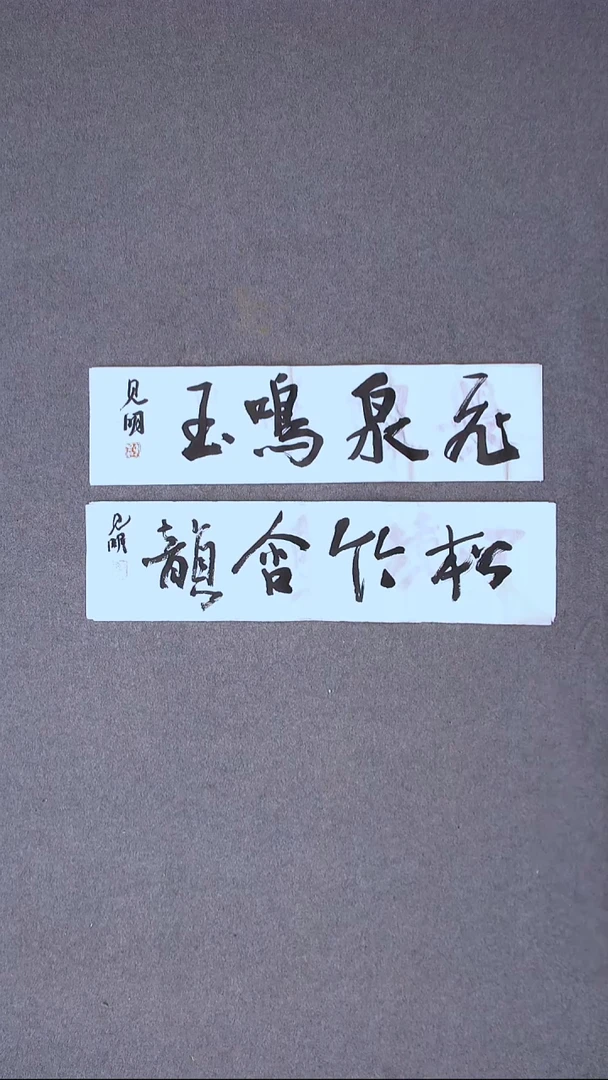 飛泉鳴玉
见明
松竹含韻
见明